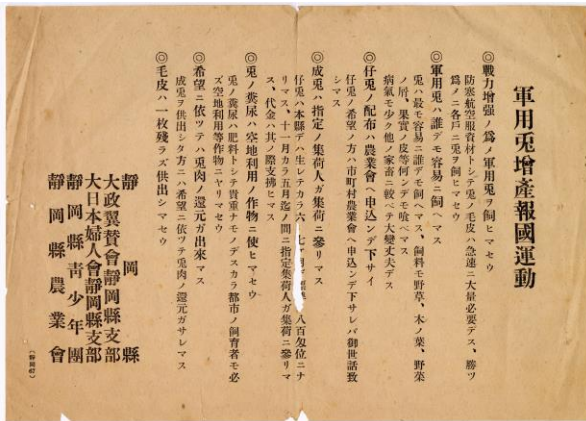 軍用兎增產報國運動
◎戰力增强ノ爲メ軍用兎ヲ飼ヒマセウ
防寒航空服資材トシテ兎ノ毛皮ハ急速ニ大量必要デス、勝ツ
爲メニ各戶ニ兎ヲ飼ヒマセウ
◎軍用兎ハ誰デモ容易ニ飼ヘマス
兎ハ最モ容易ニ誰デモ飼ヘマス、飼料モ野草、木ノ葉、野菜
ノ屑、果實ノ皮等何ンデモ喰ベマス
病氣モ少ク他ノ家畜ニ較ベテ大變丈夫デス
◎仔兎ノ配布ハ農業會ヘ申込ンデ下サイ
仔兎ノ希望ノ方ハ市町村農業會ヘ申込ンデ下サレバ御世話致
シマス
◎成兎ハ指定ノ集荷人ガ集荷ニ參リマス
仔兎ハ本縣デハ生レテカラ六 七 八百匁位ニナ
リマス、十一月カラ五月迄ノ間ニ指定集荷人ガ集荷ニ參リマ
ス、代金ハ其ノ際支拂ヒマス
◎兎ノ糞尿ハ空地利用ノ作物ニ使ヒマセウ
兎ノ糞尿ハ肥料トシテ貴重ナモノデスカラ都市ノ飼育者モ必
ズ空地利用等作物ニヤリマセウ
◎希望ニ依ツテハ兎肉ノ還元ガ出來マス
成兎ヲ供出シタ方ニハ希望ニ依ツテ兎肉ノ還元ガサレマス
◎毛皮ハ一枚殘ラズ供出シマセウ
靜岡縣
大政翼贊會靜岡縣支部
大日本婦人會靜岡縣支部
靜岡縣靑少年團
靜岡縣農業會